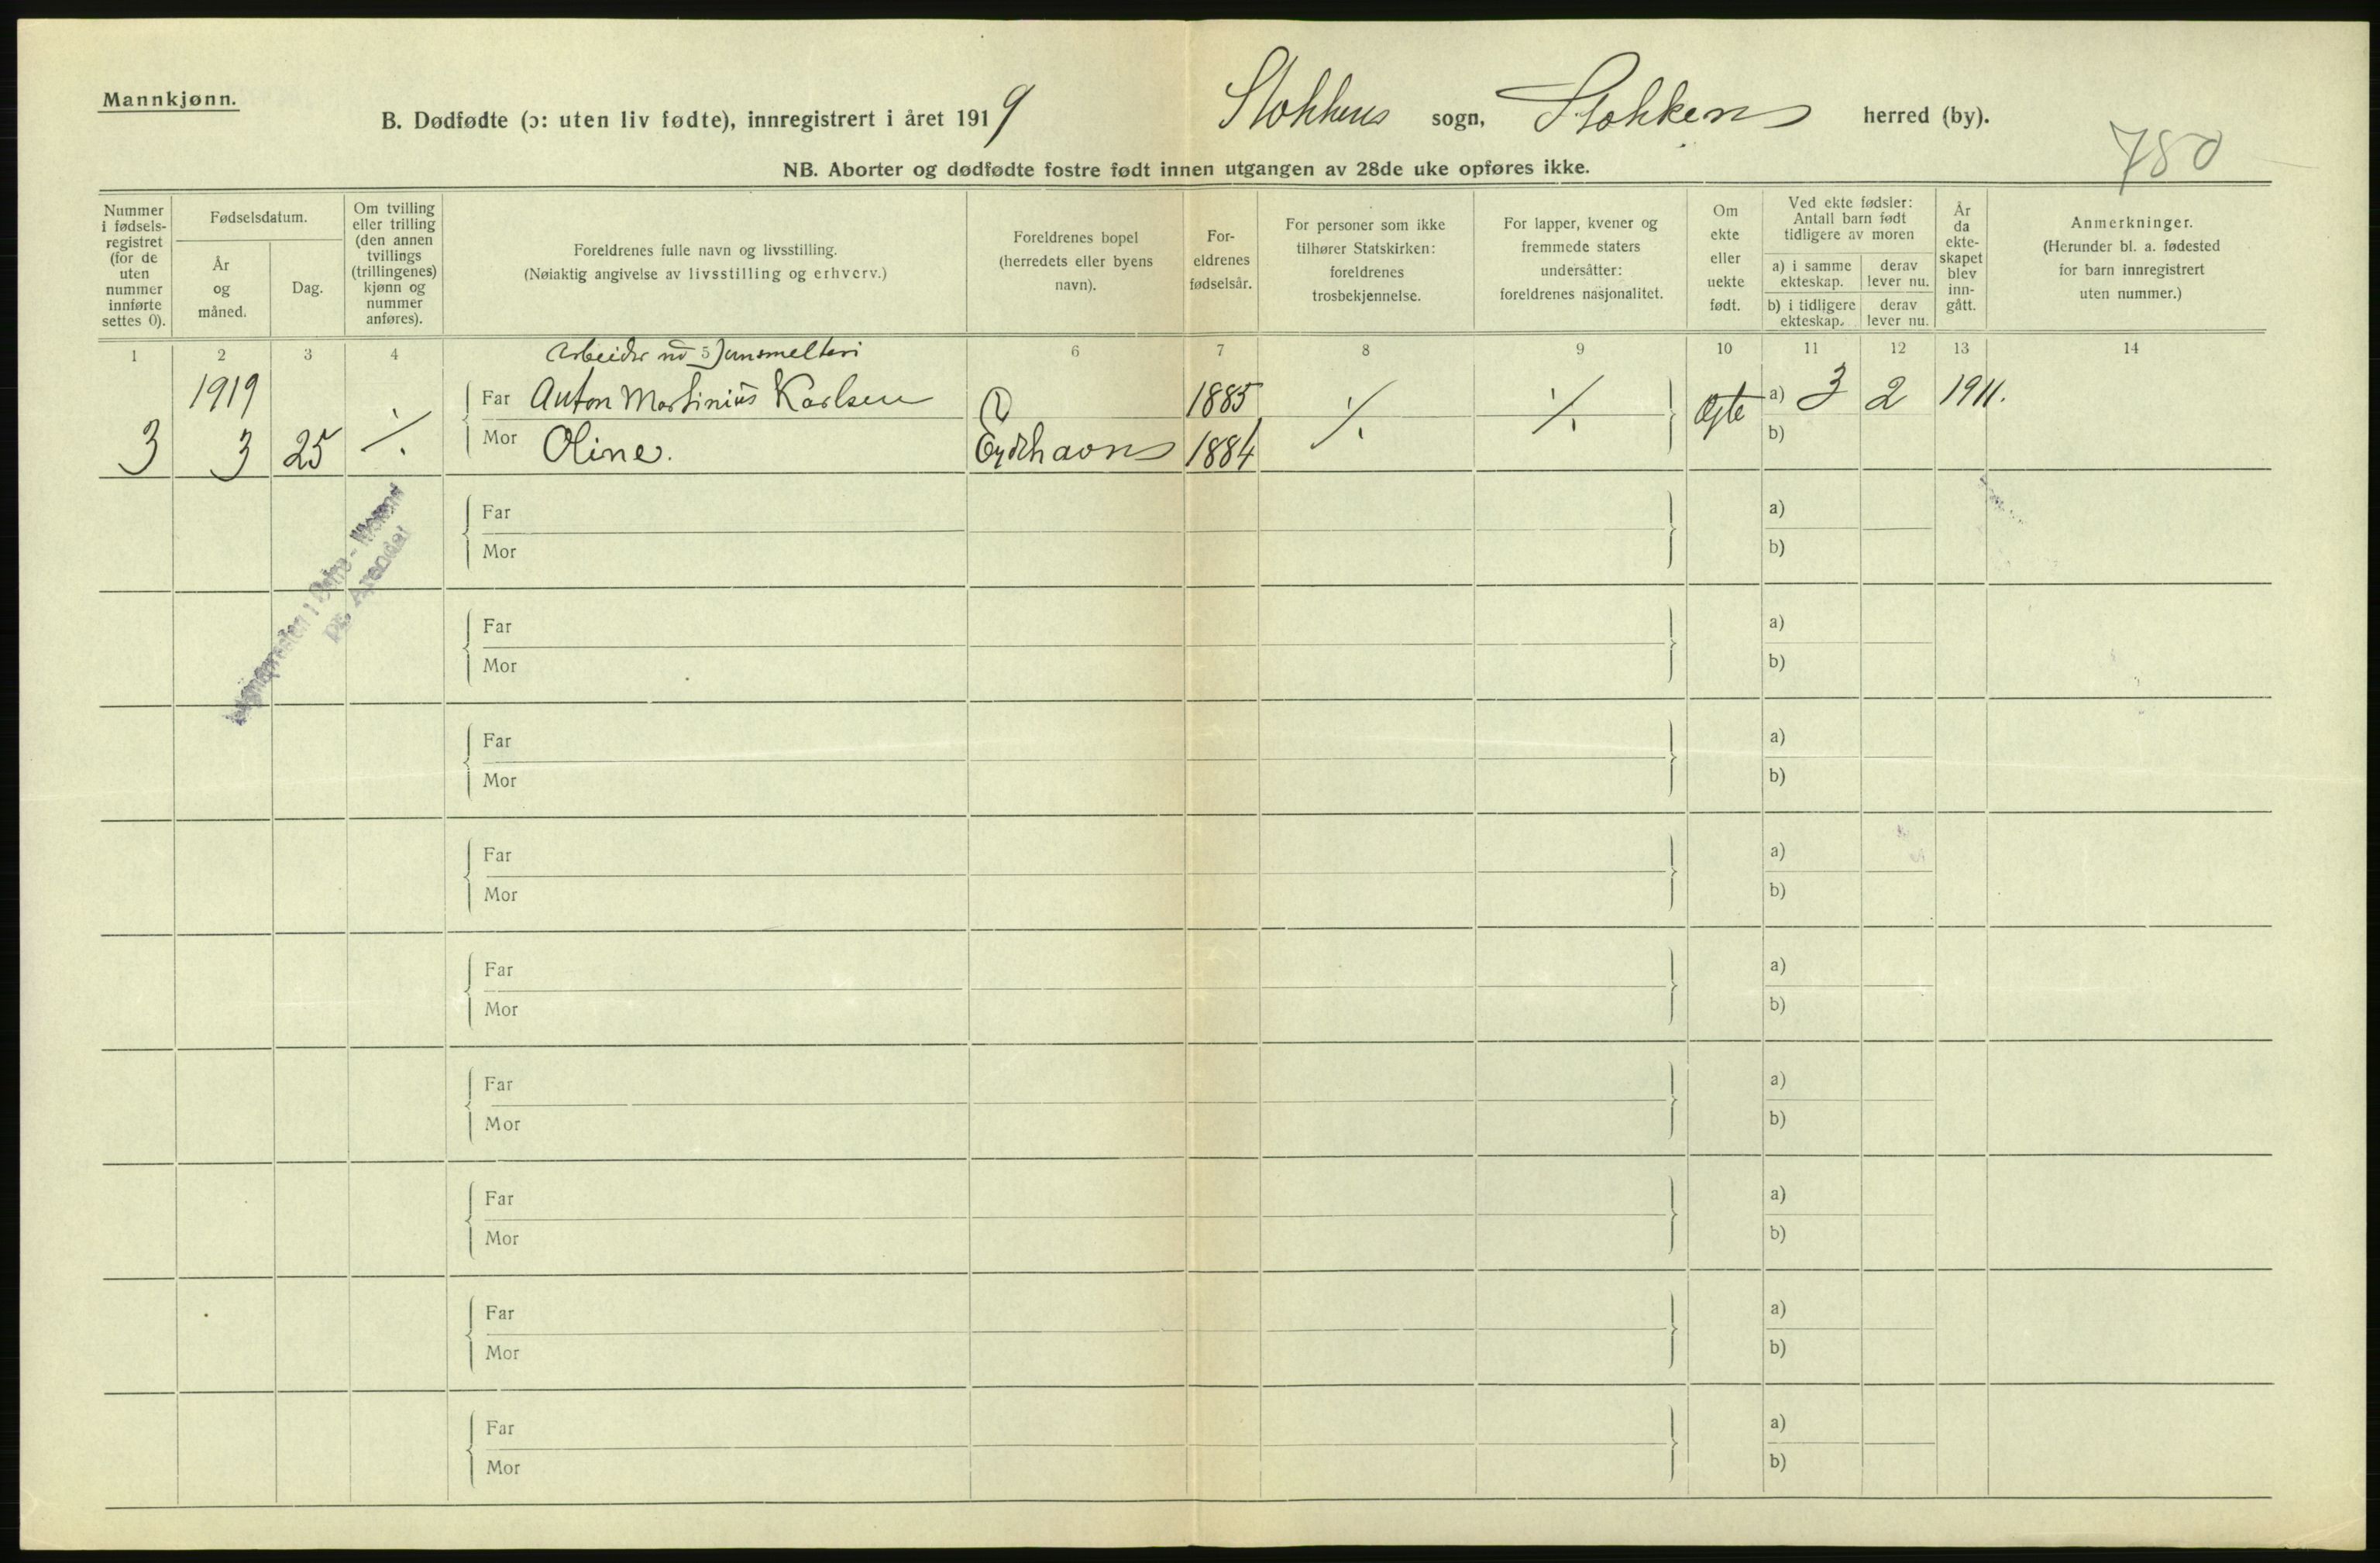 Mannkjønn.
B. Dødfødte (ɔ: uten liv fødte), innregistrert i året 1919 Stokkens sogn, Stokkens herred (by).
780
NB. Aborter og dødfødte fostre født innen utgangen av 28de uke opføres ikke.
Nummer i fødsels-registret (for de uten nummer innførte settes 0).
Fødselsdatum.
År og måned.
Dag.
Om tvilling eller trilling (den annen tvillings (trillingenes) kjønn og nummer anføres).
Foreldrenes fulle navn og livsstilling.
(Nøiaktig angivelse av livsstilling og erhverv.)
Foreldrenes bopel (herredets eller byens navn).
For-eldrenes fødselsår.
For personer som ikke tilhører Statskirken: foreldrenes trosbekjennelse.
For lapper, kvener og fremmede staters undersåtter: foreldrenes nasjonalitet.
Om ekte eller uekte født.
Ved ekte fødsler: Antall barn født tidligere av moren
a) i samme ekteskap.
derav lever nu.
b) i tidligere ekteskap.
derav lever nu.
År da ekte-skapet blev inn-gått.
Anmerkninger.
(Herunder bl. a. fødested for barn innregistrert uten nummer.)
1 2 3 4 5 6 7 8 9 10 11 12 13 14
Arbeider Jernsmelteri
1919 Far Anton Martinius Karlsen 1885 a) 3 2 1911.
3 3 25 ./. Mor Oline. Eydehavn 1884 ./. ./. Ægte b)
Far a)
Mor b)
Far a)
Mor b)
Far a)
Mor b)
Far a)
Mor b)
Far a)
Mor b)
Far a)
Mor b)
Far a)
Mor b)
Far a)
Mor b)
Far a)
Mor b)
Arendal